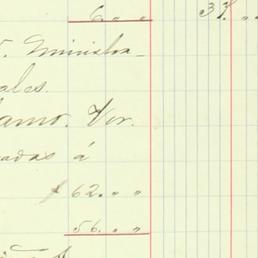 6 „ „ 37 „
Ministra_
ales.
amo. Ver.
adas á
$ 62 „ „
56 „ „